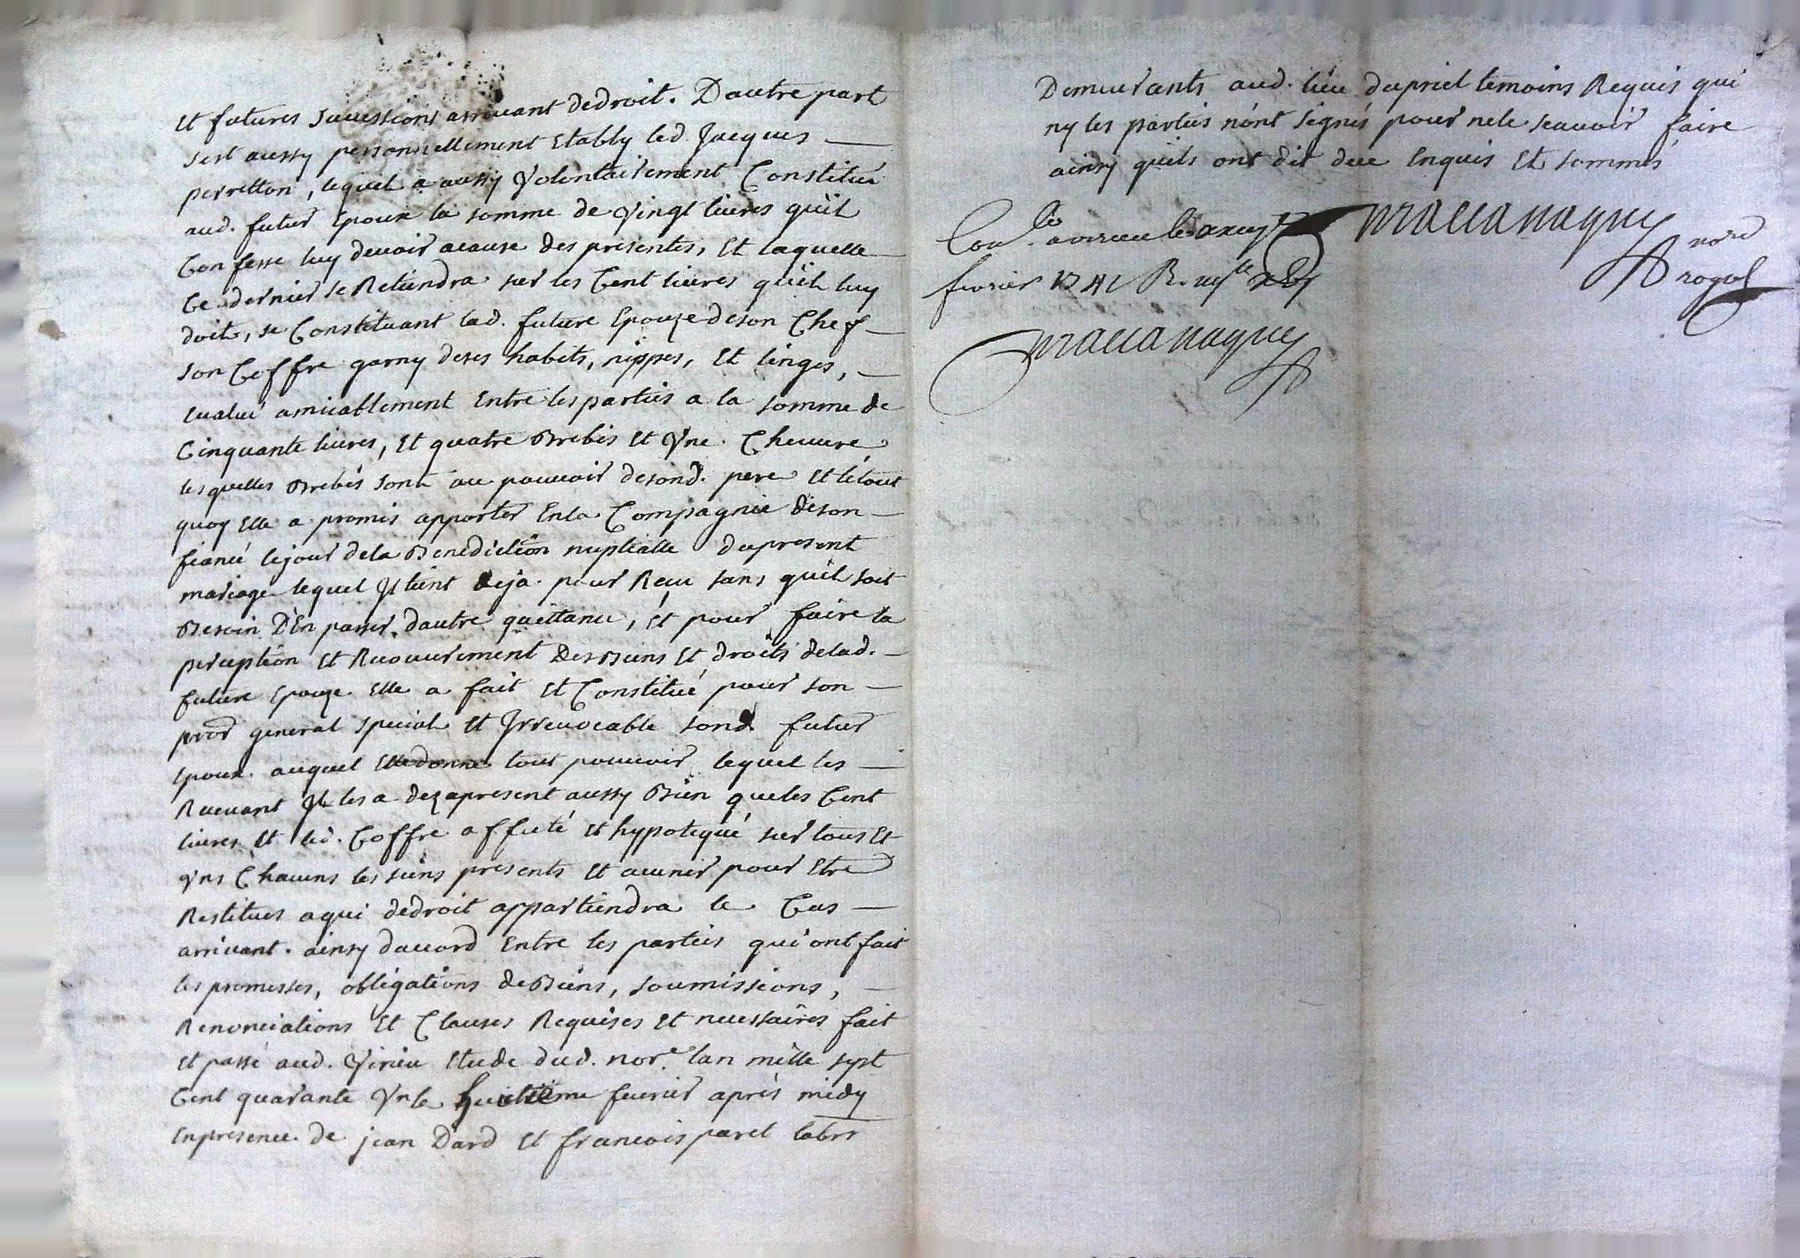 Et futures successions arrivant de droit. Dautre part
sest aussy personnellement Etably led. Jacques
perretton, lequel a aussy Volontairement Constitué
aud. futur Epoux la somme de Vingt livres quil
Confesse luy devoir acause des presentes, Et laquelle
Ce dernier se Retiendra sur les Cent livres qu'il luy
doit, se Constituant lad. future Epouze de son Chef
son Coffre garny deses habits, nippes, Et linges,
Evalué amicablement Entre les parties a la somme de
Cinquante livres, Et quatre Brebis Et Vne Chevvre
lesquelles Brebis sont au pouvoir desond. pere Et letout
quoy Elle a promis apporter Enla Compagnie deson
fiancé lejour dela Benediction nuptialle dupresent
mariage lequel Jl tient deja pour Reçu sans quil soit
Besoin D'En passer dautre quittance, Et pour faire la
perception Et Recouvrement Des Biens Et droits delad.
future Epouze Elle a fait Et Constitué pour son
procr general special Et Jrrevocable sond. futur
Epoux auquel Elle donne tout pouvoir lequel les
Recevant Jl les a dezapresent aussy Bien queles Cent
livres Et led. Coffre affecté Et hypotequé sur tous Et
Vns Chacuns les siens presents Et avenir pour Etre
Restitues aqui dedroit appartiendra le Cas
arrivant. ainsy daccord Entre les parties qui ont fait
les promesses, obligations de Biens, soumissions,
Renonciations Et Clauses Requises Et necessaires fait
Et passé aud. Virieu Etude dud. nore. lan mille sept
Cent quarante Vn le huitieme fevrier après midy
Enpresence de jean Dard Et francois parel labrs
Demeurants aud. lieu dupriel temoins Requis qui
ny les parties n'ont signés pour nele sçavoir faire
ainsy quils ont dit de ce Enquis Et sommés
Maccanaguy
nore
royal
Con.lé a virieu le
fevrier 1741 R.
Maccanaguy